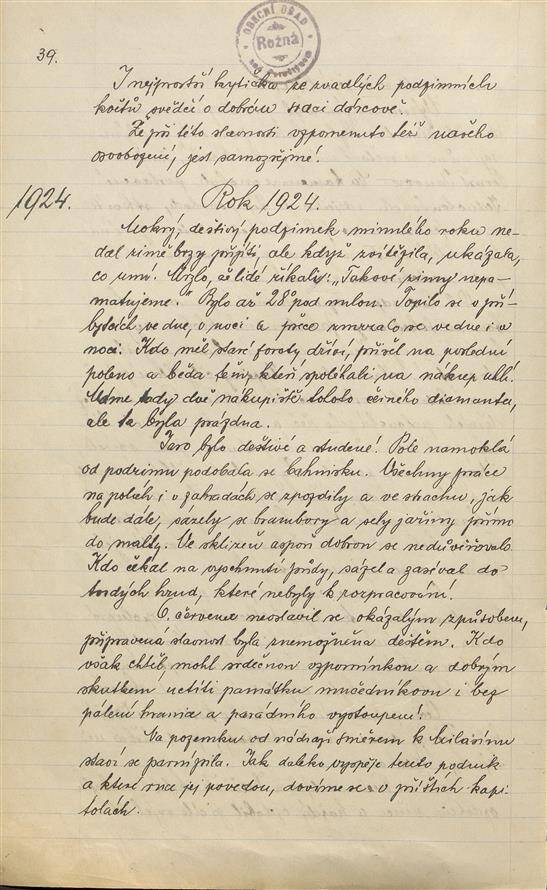 39.
OBECNÍ ÚŘAD
Rožná
nad Pernštejnem
I nejprostší kytička ze zvadlých podzimních
květů svědčí o dobrém srdci dárcově.
Že při této slavnosti vzpomenuto též našeho
osvobození, jest samozřejmé!
1924. Rok 1924.
Mokrý, deštivý podzimek minulého roku ne-
dal zimě brzy přijíti, ale když zvítězila, ukázala,
co umí. Mrzlo, až lidé říkali: „Takové zimy nepa-
matujeme." Bylo až 28° pod nulou. Topilo se v pří-
bytcích ve dne, v noci a přece zmrzalo se ve dne i v
noci. Kdo měl staré foroty dříví, přišel na poslední
poleno a běda těm, kteří spoléhali na nákup uhlí.
Máme tady dvě nákupiště tohoto černého diamantu,
ale ta byla prázdna.
Jaro bylo deštivé a studené! Pole namoklá
od podzimu podobala se bahnisku. Všechny práce
na polích i v zahradách se zpozdily a ve strachu, jak
bude dále, sázely se brambory a sely jařiny přímo
do malty. Ve sklizeň aspoň dobrou se nedůvěřovalo.
Kdo čekal na vyschnutí půdy, sázel a zaséval do
tvrdých hrud, které nebyly k rozpracování!
6. červenec neoslavil se okázalým způsobem,
připravena slavnost byla znemožněna deštěm. Kdo
však chtěl, mohl srdečnou vzpomínkou a dobrým
skutkem uctíti památku mučedníkovu i bez
pálení hranice a parádního vystoupení!
Na pozemku od nádraží směrem k Milasínu
staví se parní pila. Jak daleko vyspěje tento podnik
a které ruce jej povedou, dovíme se v příštích kapi-
tolách.